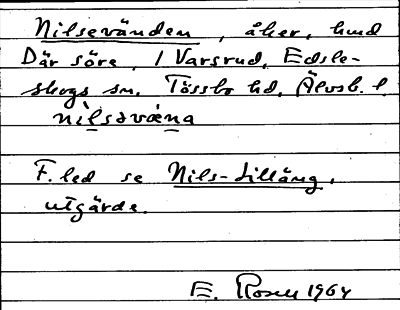 Nilsevänden, åker, hmd
Där söre, 1 Varsrud, Edsle-
skogs sn. Tössbo hd, Älvsb. l.
nilsəvæna
F.led se Nils-lilläng,
utgärde.
E. Rosell 1964